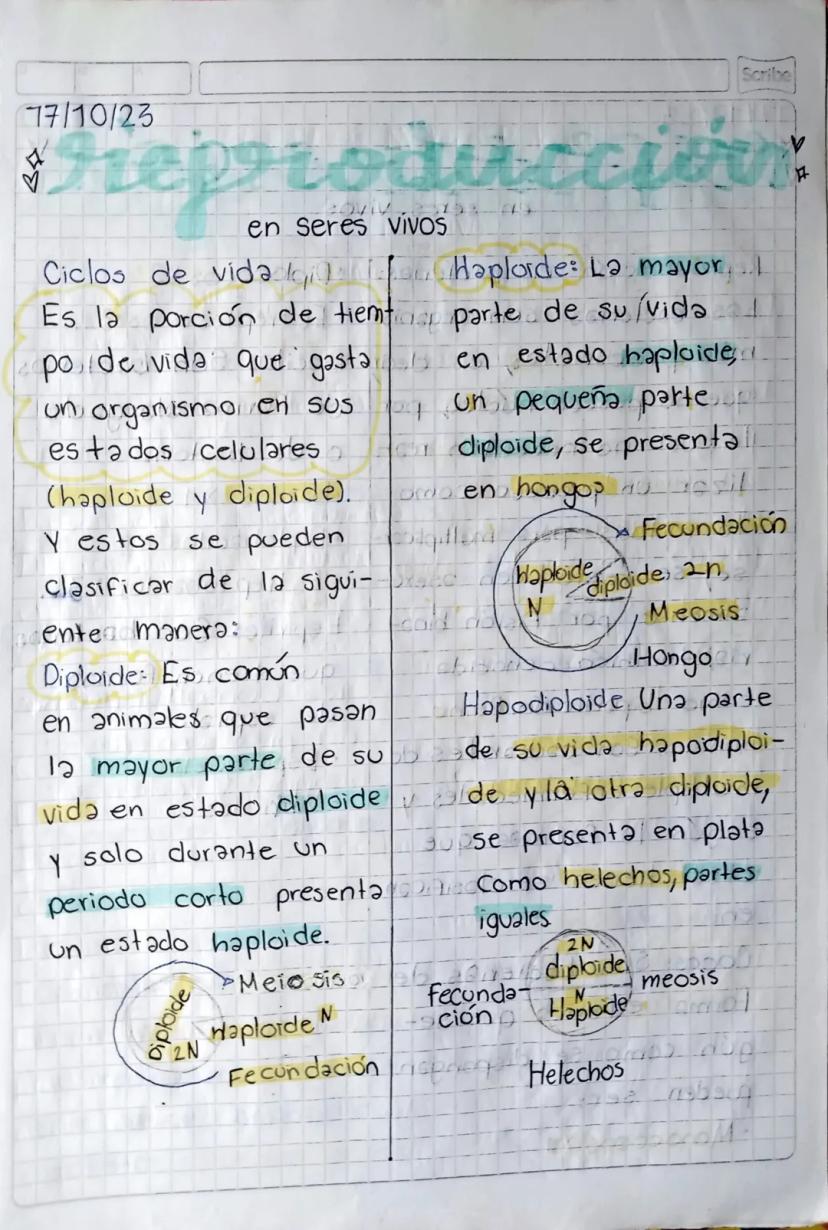 Scribe
17/10/23
reproducción
en seres vivos
Ciclos de vida
Es la porción de tiem
po de vida que gasta
un organismo en sus
estados celulares
(haploide y diploide).
Y estos se pueden
clasificar de la sigui-
ente manera:
Diploide: Es común
en animales que pasan
la mayor parte de su
vida en estado diploide
y solo durante un
periodo corto presenta
un estado haploide.
Meiosis
Diploide
2N
Haploide N
Fecundación
Haploide: La mayor
parte de su vida
en estado haploide,
un pequeña parte
diploide, se presenta
en hongos
Fecundación
Haploide
N
diploide 2n
Meosis
Hongo
Hapodiploide Una parte
de su vida hapodiploi-
de y la otra diploide,
se presenta en plata
como helechos, partes
iguales
2N
diploide
fecunda-
ción
meosis
N
Haploide
Helechos